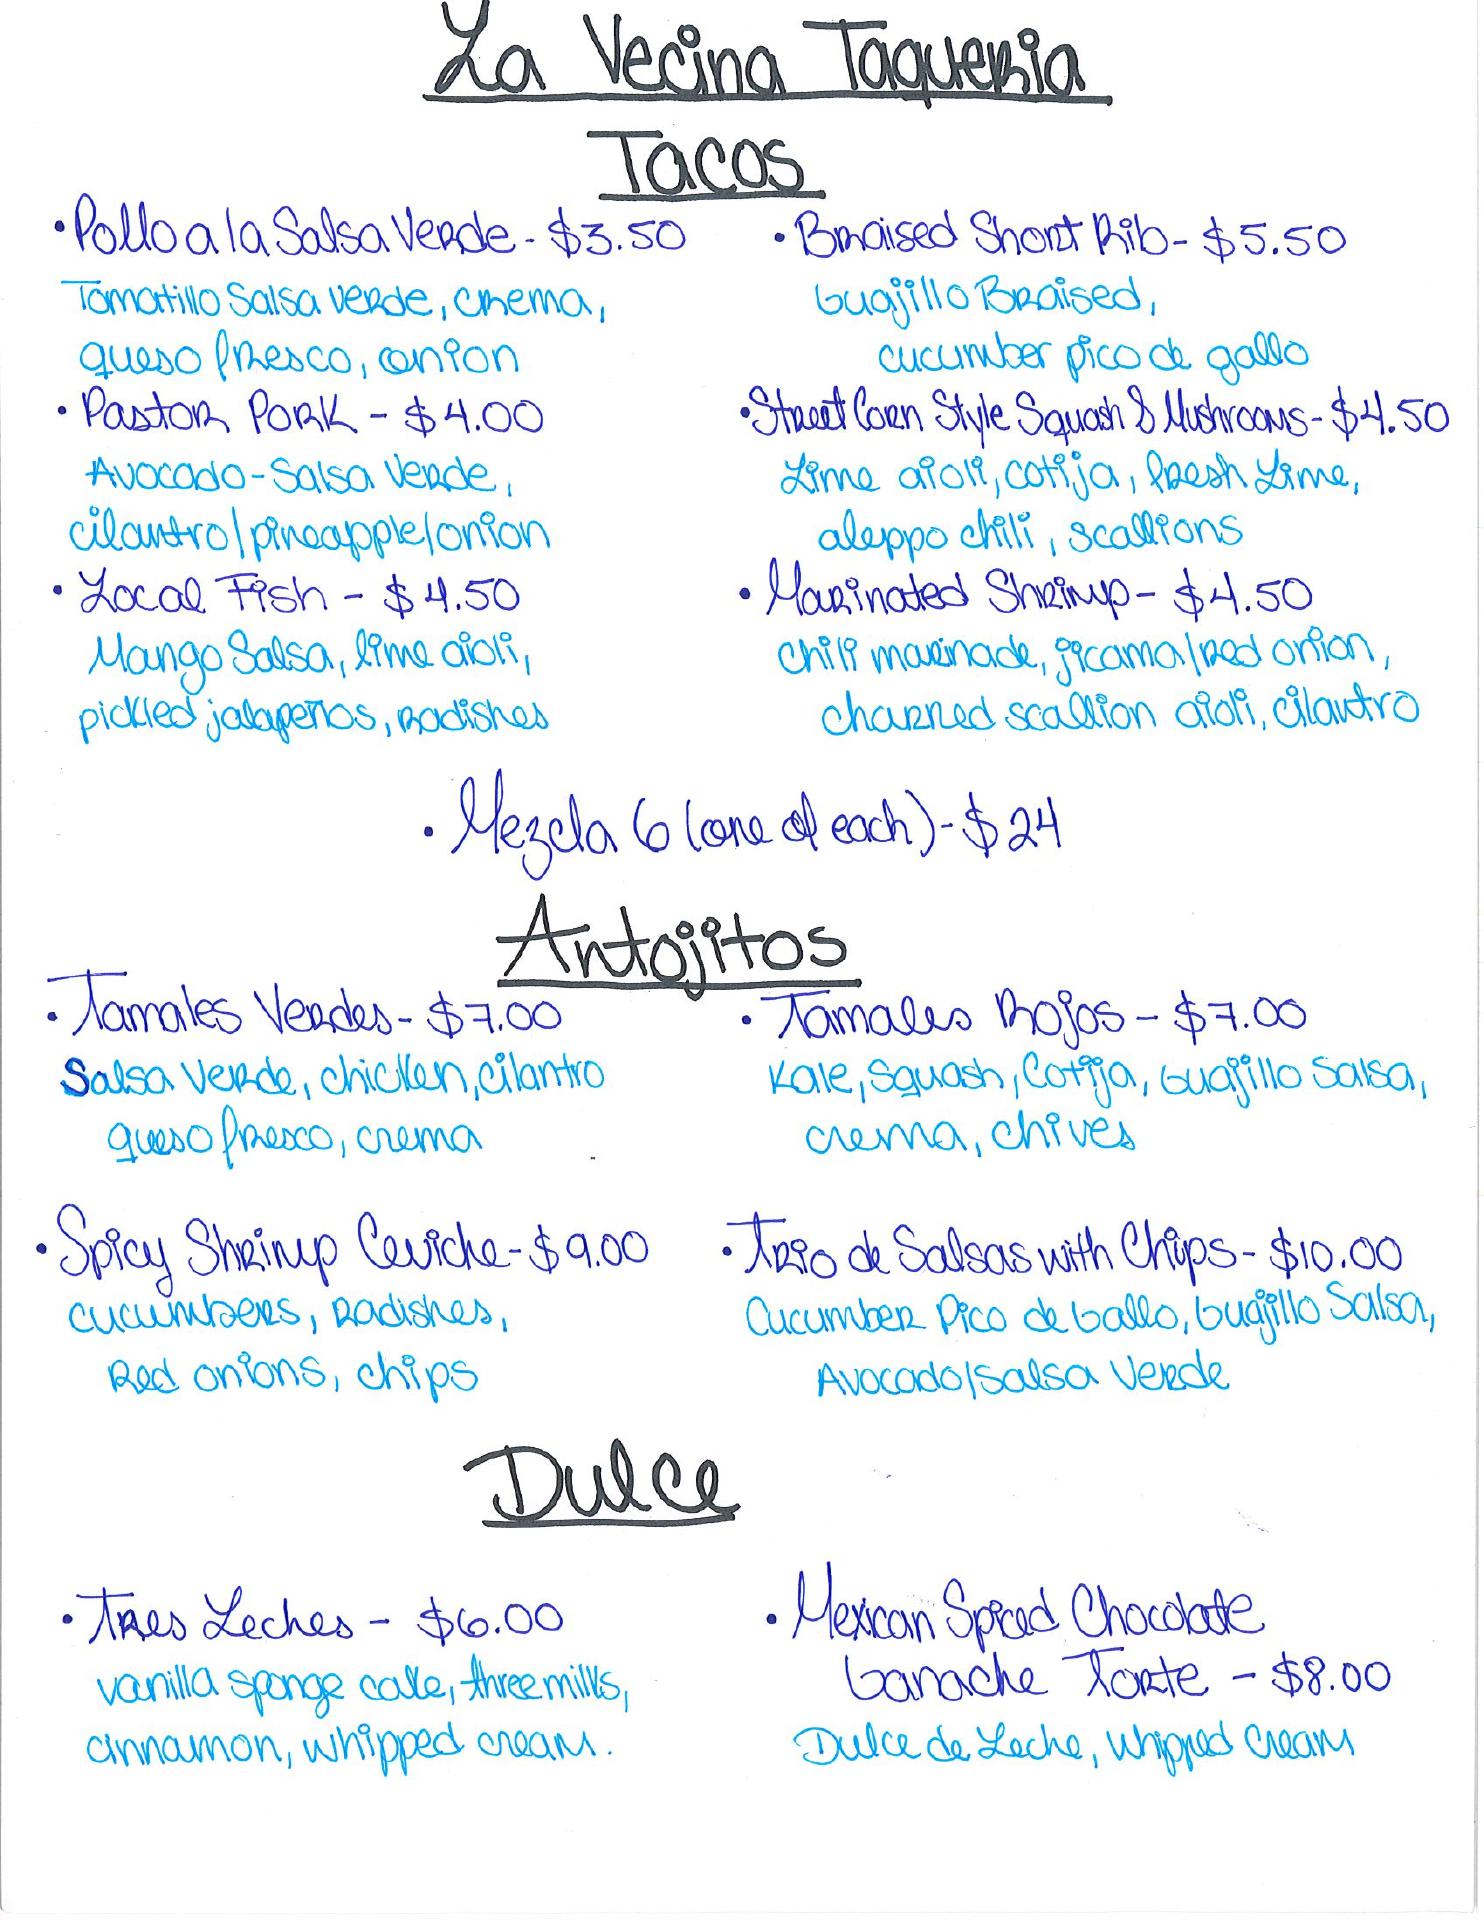 La Vecina Taqueria
Tacos
• Pollo a la Salsa Verde - $3.50
Tomatillo Salsa verde, crema,
queso fresco, onion
• Pastor Pork - $4.00
Avocado-Salsa Verde,
cilantro/pineapple/onion
• Local Fish - $4.50
Mango Salsa, lime aioli,
pickled jalapeños, radishes
• Braised Short Rib - $5.50
Guajillo Braised,
cucumber pico de gallo
• Street Corn Style Squash & Mushrooms - $4.50
Lime aioli, cotija, fresh Lime,
aleppo chili, scallions
• Marinated Shrimp - $4.50
chili marinade, jicama/red onion,
charred scallion aioli, cilantro
• Mezcla 6 (one of each) - $24
Antojitos
• Tamales Verdes - $7.00
Salsa Verde, chicken, cilantro
queso fresco, crema
• Tamales Rojos - $7.00
Kale, Squash, Cotija, Guajillo Salsa,
crema, chives
• Spicy Shrimp Ceviche - $9.00
cucumbers, Radishes,
Red onions, chips
• Trio de Salsas with Chips - $10.00
Cucumber Pico de Gallo, Guajillo Salsa,
Avocado/Salsa Verde
Dulce
• Tres Leches - $6.00
vanilla sponge cake, three milks,
cinnamon, whipped cream.
• Mexican Spiced Chocolate
Ganache Torte - $8.00
Dulce de Leche, Whipped Cream